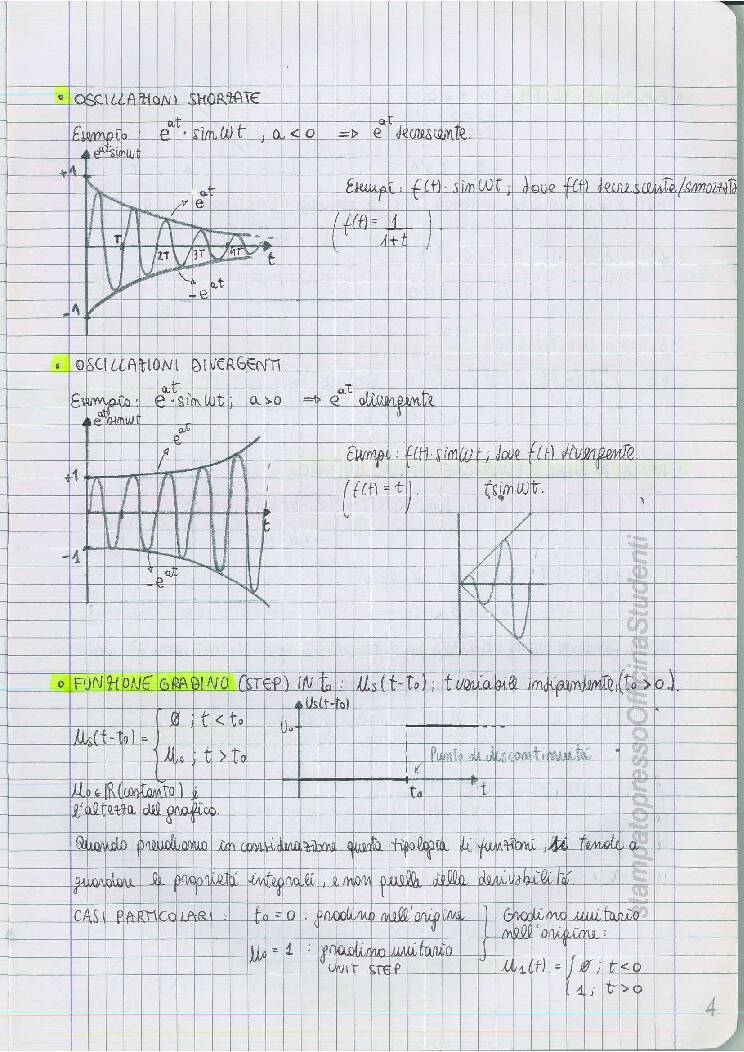 • OSCILLAZIONI SMORZATE
Esempio : e^at · sin ωt , a < 0 => e^at decrescente.
e^at sin ωt
+1
e^at
T 2T 3T 4T t
-e^at
-1
Esempi : f(t) · sin ωt ; dove f(t) decrescente/smorzata
(f(t) = 1/(1+t))
• OSCILLAZIONI DIVERGENTI
Esempio : e^at · sin ωt ; a > 0 => e^at divergente
e^at sin ωt
e^at
+1
t
-1
-e^at
Esempi : f(t) · sin ωt ; dove f(t) divergente
(f(t) = t). t sin ωt.
• FUNZIONE GRADINO (STEP) IN t₀ : us(t-t₀) ; t variabile indipendente, (t₀ > 0).
us(t-t₀) = { 0 ; t < t₀
u₀ ; t > t₀
Us(t-t₀)
U₀
Punto di discontinuità
t₀ t
u₀ ∈ R (costante) è
l'altezza del grafico.
Quando prendiamo in considerazione questa tipologia di funzioni, si tende a
guardare le proprietà integrali, e non quella della derivabilità
CASI PARTICOLARI : t₀ = 0 : gradino nell'origine
u₀ = 1 : gradino unitario
UNIT STEP
} Gradino unitario
nell'origine :
u₁(t) = { 0 ; t < 0
1 ; t > 0
4
stampatopressoOfficinaStudenti